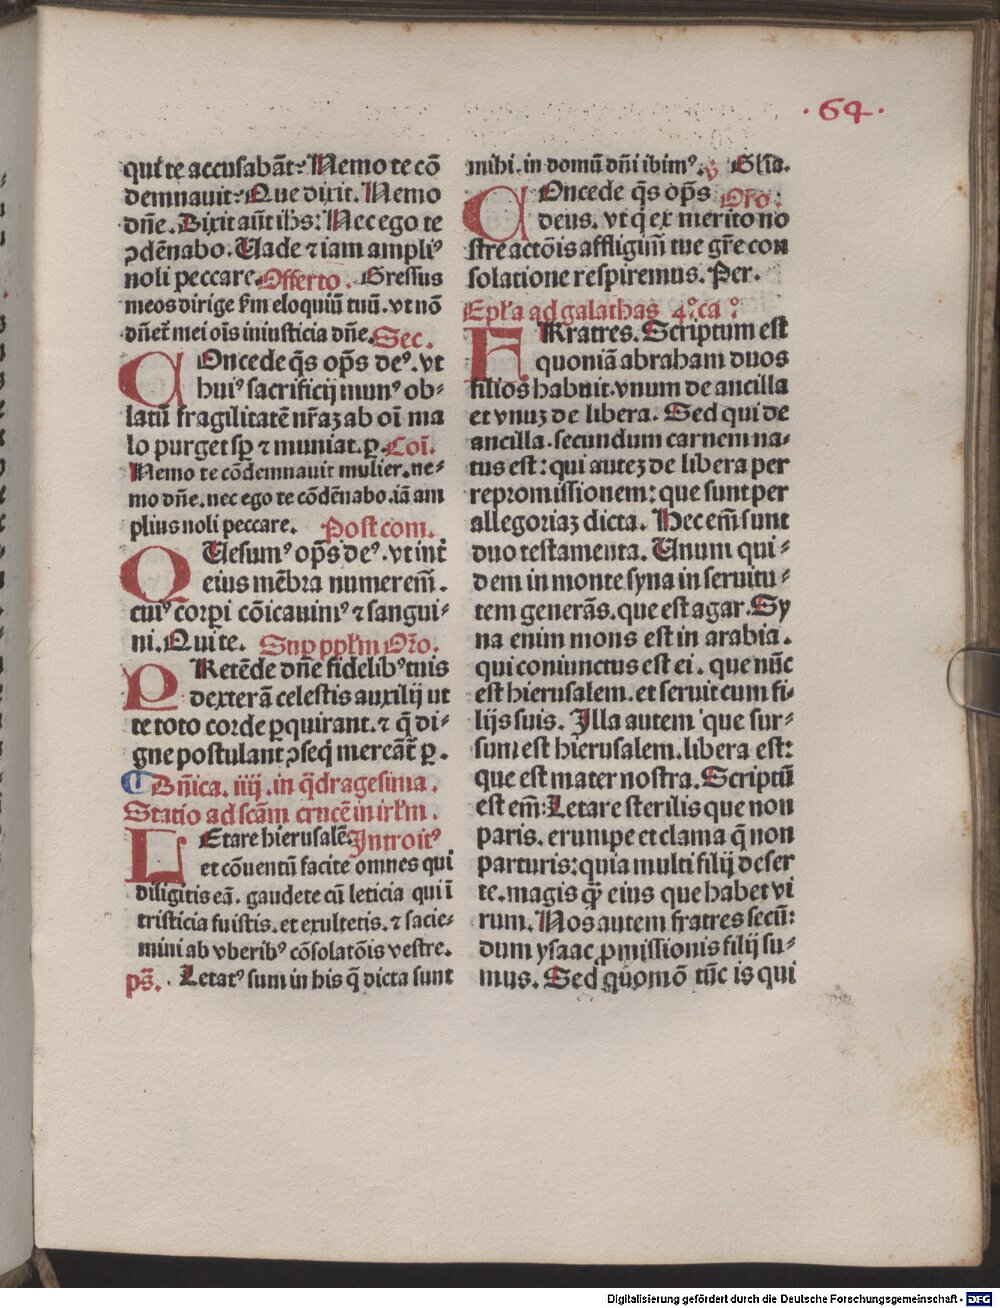 ·64·
qui te accusabāt? Nemo te cō
demnauit? Que dixit. Nemo
dn̄e. Dixit aūt ih̄s: Nec ego te
ↄdēnabo. Uade ⁊ iam ampliꝰ
noli peccare. Offerto. Gressus
meos dirige ẜm eloquiū tuū. vt nō
dn̄et mei oīs iniusticia dn̄e. Sec.
COncede q̄s op̄s deꝰ. vt
huiꝰ sacrificij munꝰ ob-
latū fragilitatē nr̄aꝫ ab oī ma
lo purget sꝑ ⁊ muniat. ꝑ. Coī.
Nemo te cōdemnauit mulier. ne-
mo dn̄e. nec ego te cōdēnabo. iā am
plius noli peccare. Post com.
QUesumꝰ op̄s deꝰ. vt int̄
eius mēbra numerem̄.
cuiꝰ corꝑi cōicauimꝰ ⁊ sangui-
ni. Qui te. Suꝑ pplm Oro.
PRetēde dn̄e fidelibꝰ tuis
dexterā celestis auxilij ut
te toto corde ꝑquirant. ⁊ q̄ di-
gne postulant ↄseq̄ mereāt̄ ꝑ.
Dn̄ica. iiij. in q̄dragesima.
Statio ad scām crucē in irlm.
LEtare hierusalē Introitꝰ
et cōuentū facite omnes qui
diligitis eā. gaudete cū leticia qui ī
tristicia fuistis. et exultetis. ⁊ sacie-
mini ab vberibꝰ cōsolatōis vestre.
ps̄. Letatꝰ sum in his q̄ dicta sunt
mihi. in domū dn̄i ibimꝰ. v Gl̄ia.
COncede q̄s op̄s Oro.
deus. vt q̄ ex merito no
stre actōis affligim̄ tue gr̄e con
solatione respiremus. Per.
Epl̄a ad galathas 4° ca°
FRatres. Scriptum est
quoniā abraham duos
filios habuit. vnum de ancilla
et vnuꝫ de libera. Sed qui de
ancilla. secundum carnem na-
tus est: qui auteꝫ de libera per
repromissionem: que sunt per
allegoriaꝫ dicta. Hec em̄ sunt
duo testamenta. Unum qui-
dem in monte syna in seruitu-
tem generās. que est agar. Sy
na enim mons est in arabia.
qui coniunctus est ei. que nūc
est hierusalem. et seruit cum fi-
lijs suis. Illa autem que sur-
sum est hierusalem. libera est:
que est mater nostra. Scriptū
est em̄: Letare sterilis que non
paris. erumpe et clama q̄ non
parturis: quia multi filij deser
te. magis q̄ȝ eius que habet vi
rum. Nos autem fratres secū:
dum ysaac ꝓmissionis filij su-
mus. Sed quomō tūc is qui
Digitalisierung gefördert durch die Deutsche Forschungsgemeinschaft - DFG